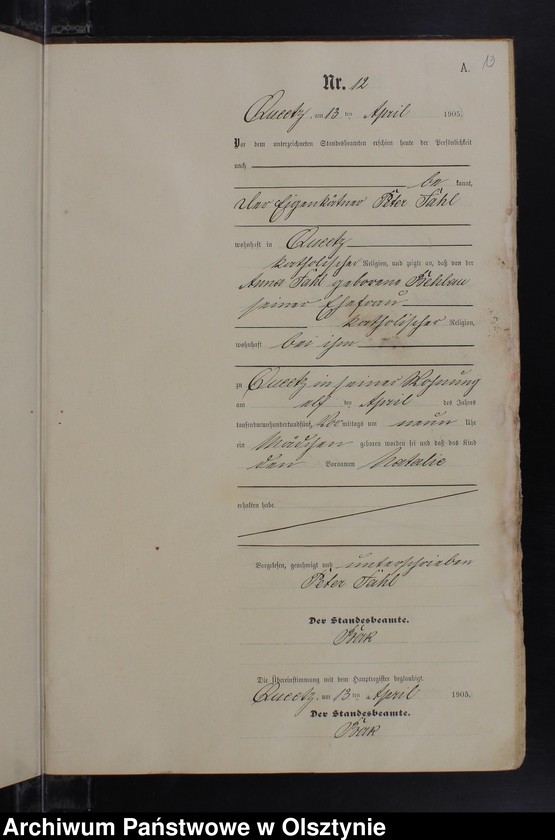 A. 13
Nr. 12
Queetz, am 13 ten April 1905.
Vor dem unterzeichneten Standesbeamten erschien heute der Persönlichkeit
nach
be kannt,
der Eigenkätner Peter Fahl
wohnhaft in Queetz
katholischer Religion, und zeigte an, daß von der
Anna Fahl geborene
seiner Ehefrau
katholischer Religion,
wohnhaft bei ihm
zu Queetz in seiner Wohnung
am elf ten April des Jahres
tausendneunhundertfünf, Vor mittags um neun Uhr
ein Mädchen geboren worden sei und daß das Kind
den Vornamen Natalie
erhalten habe
Vorgelesen, genehmigt und unterschrieben
Peter Fahl
Der Standesbeamte.
Die Übereinstimmung mit dem Hauptregister beglaubigt.
Queetz, am 13 ten April 1905.
Der Standesbeamte.
Archiwum Państwowe w Olsztynie